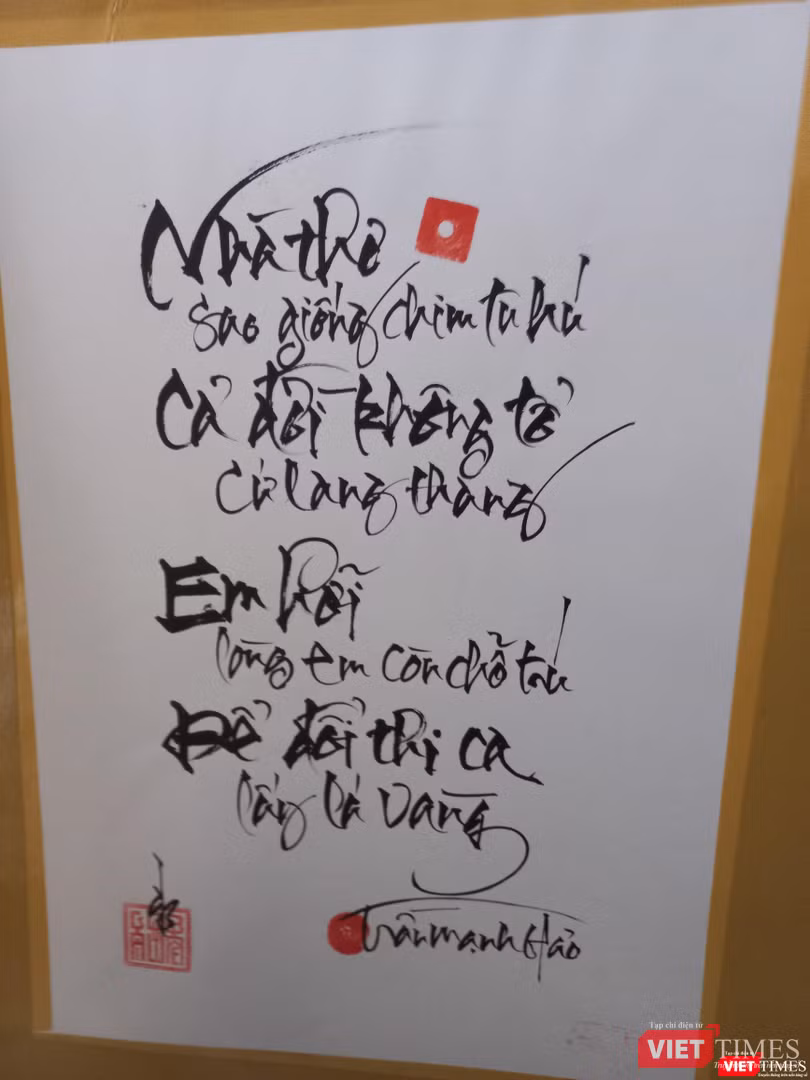 Nhà thơ
sao giống chim tu hú
Cả đời không tổ
cứ lang thang
Em hỡi
lòng em còn chỗ trú
Để đổi thi ca
lấy lá vàng
Trần Mạnh Hảo
Tạp chí điện tử
VIET TIMES
VIET TIMES